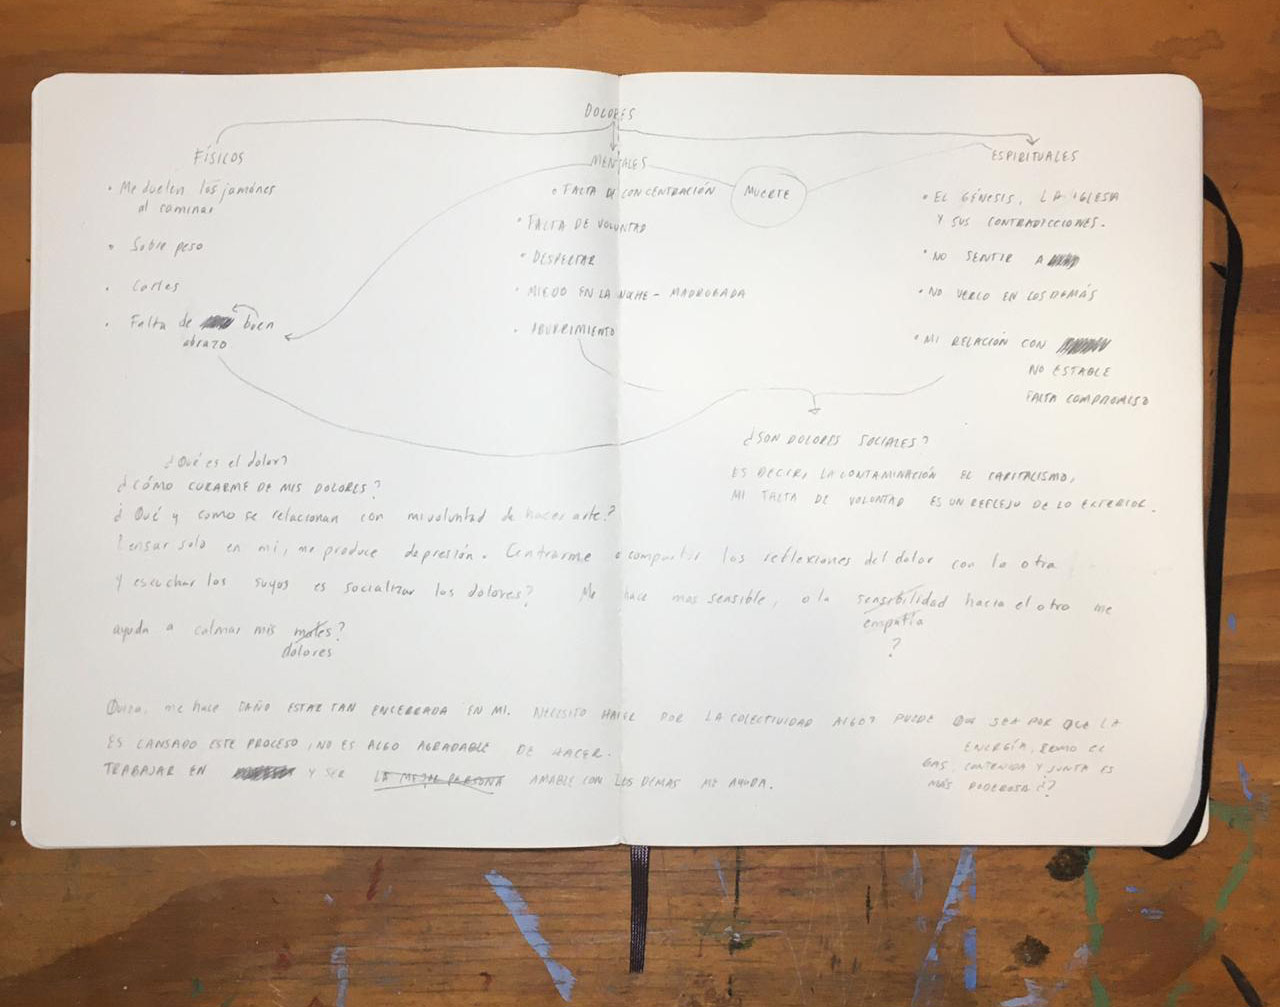 DOLORES
FÍSICOS
• Me duelen los jamónes
al caminar
• Sobre peso
• Cortes
• Falta de buen
abrazo
MENTALES
• FALTA DE CONCENTRACIÓN
• FALTA DE VOLUNTAD
• DESPERTAR
• MIEDO EN LA NOCHE - MADRUGADA
• ABURRIMIENTO
MUERTE
ESPIRITUALES
• EL GÉNESIS, LA IGLESIA
Y SUS CONTRADICCIONES.
• NO SENTIR A
• NO VERLO EN LOS DEMÁS
• MI RELACIÓN CON
NO ESTABLE
FALTA COMPROMISO
¿SON DOLORES SOCIALES?
ES DECIR, LA CONTAMINACIÓN EL CAPITALISMO,
MI FALTA DE VOLUNTAD ES UN REFLEJO DE LO EXTERIOR.
¿Qué es el dolor?
¿CÓMO CURARME DE MIS DOLORES?
¿Qué y como se relacionan con mi voluntad de hacer arte?
Pensar solo en mi, me produce depresión. Centrarme o compartir las reflexiones del dolor con la otra
y escuchar los suyos es socializar los dolores? Me hace mas sensible, o la sensibilidad hacia el otro me
empatía
ayuda a calmar mis males?
dolores
?
Quiza, me hace DAÑO ESTAR TAN ENCERRADA EN MI. NECESITO HACER POR LA COLECTIVIDAD ALGO? PUEDE QUE SEA POR QUE LA
ENERGÍA, COMO EL
GAS, CONTENIDA Y JUNTA ES
MÁS PODEROSA ¿?
ES CANSADO ESTE PROCESO, NO ES ALGO AGRADABLE DE HACER.
TRABAJAR EN Y SER LA MEJOR PERSONA AMABLE CON LOS DEMAS ME AYUDA.